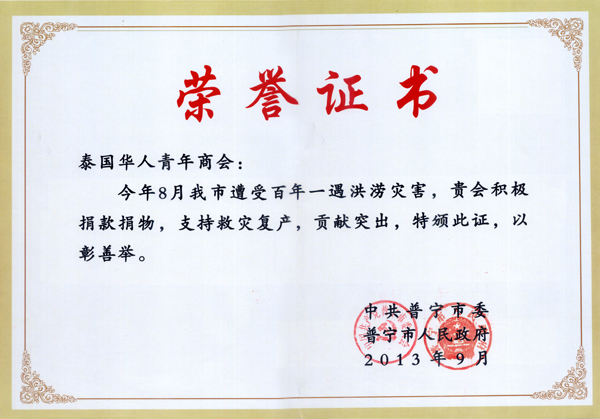 荣誉证书
泰国华人青年商会：
今年8月我市遭受百年一遇洪涝灾害，贵会积极
捐款捐物，支持救灾复产，贡献突出，特颁此证，以
彰善举。
中共普宁市委
普宁市人民政府
2013年9月